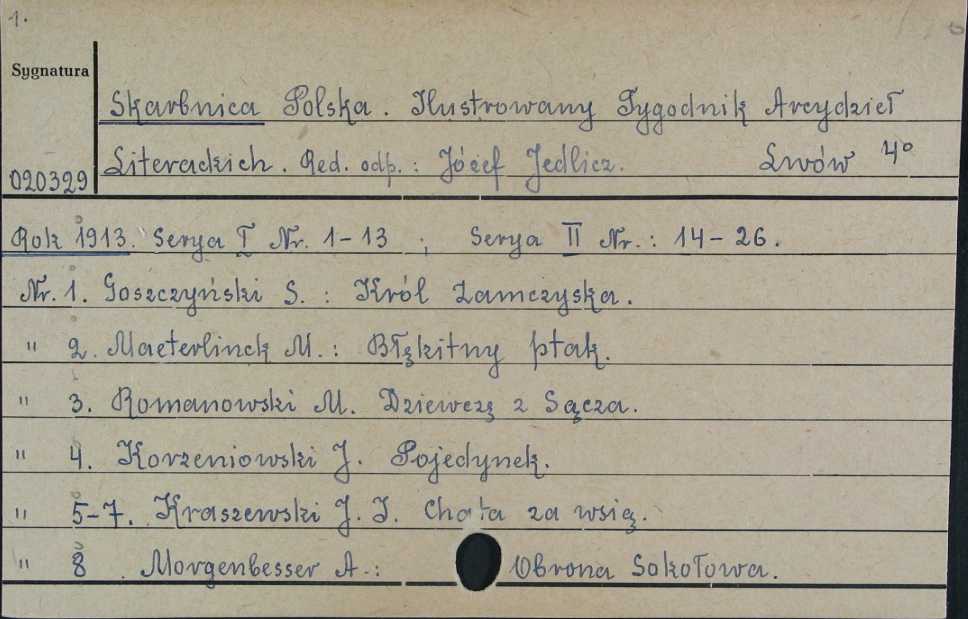 1.
Sygnatura
Skarbnica Polska. Ilustrowany Tygodnik Arcydzieł
Literackich. Red. odp.: Józef Jedlicz. Lwów 4°
020329
Rok 1913. Serya I Nr. 1-13 ; Serya II Nr.: 14-26.
Nr. 1. Goszczyński S.: Król Zamczyska.
" 2. Maeterlinck M.: Błękitny ptak.
" 3. Romanowski M. Dziewczę z Sącza.
" 4. Korzeniowski J. Pojedynek.
" 5-7. Kraszewski J. I. Chata za wsią.
" 8 . Morgenbesser A.: Obrona Sokołowa.